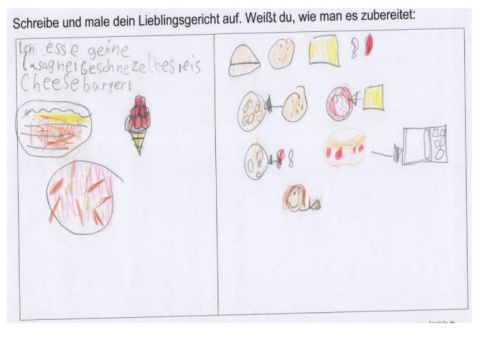 Schreibe und male dein Lieblingsgericht auf. Weißt du, wie man es zubereitet:
Ich esse gerine
Lasagnei Geschnezeltes reis
Cheesebargeri